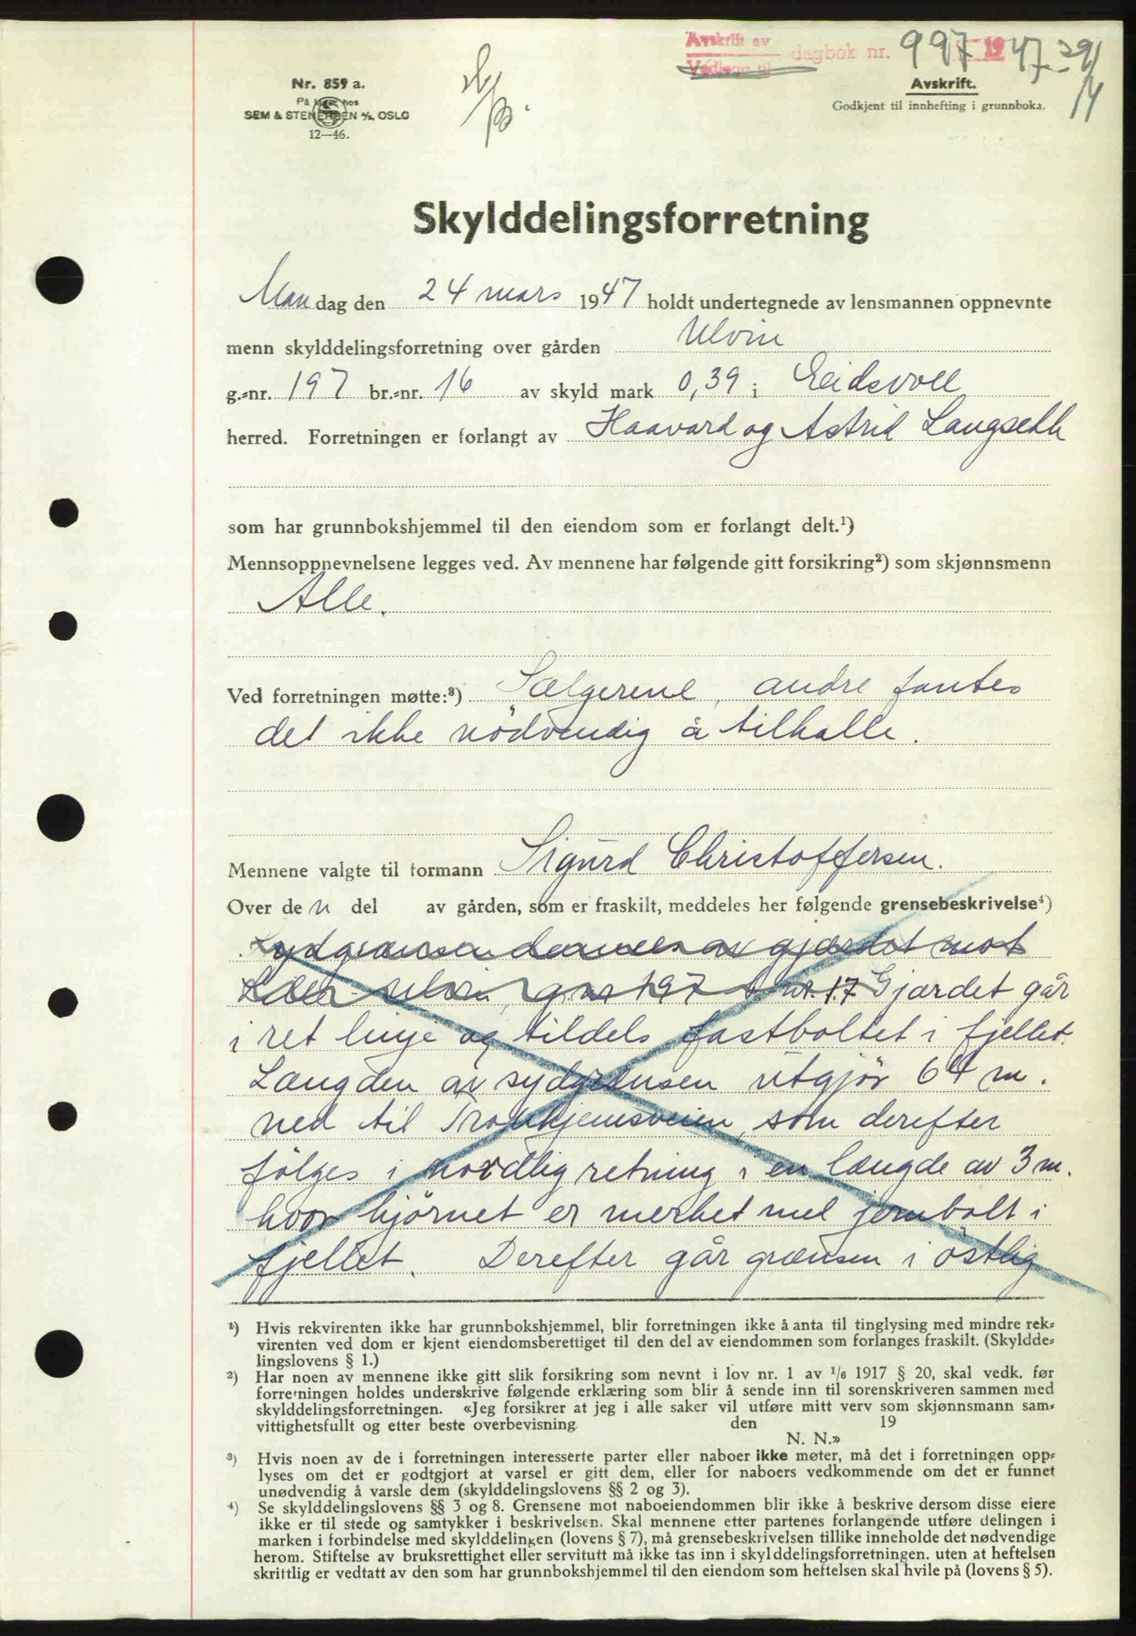 Avskrift av
Vedlegg til dagbok nr. 997 1947 29/4
Nr. 859 a.
På lager hos
SEM & STENERSEN A/S, OSLO
12—46.
Avskrift.
Godkjent til innhefting i grunnboka.
Skylddelingsforretning
Man dag den 24 mars 1947 holdt undertegnede av lensmannen oppnevnte
menn skylddelingsforretning over gården Ulvin
g.-nr. 197 br.-nr. 16 av skyld mark 0,39 i Eidsvoll
herred. Forretningen er forlangt av Haavard og Astrid Langseth
som har grunnbokshjemmel til den eiendom som er forlangt delt.¹)
Mennsoppnevnelsene legges ved. Av mennene har følgende gitt forsikring²) som skjønnsmenn
Alle.
Ved forretningen møtte:³) Sælgerene, andre fantes
det ikke nödvendig å tilkalle.
Mennene valgte til formann Sigurd Christoffersen.
Over de n del av gården, som er fraskilt, meddeles her følgende grensebeskrivelse⁴)
Sydgrænsen dannes av gjærdet mot
gnr 197 b nr. 17 Gjærdet går
i ret linje og tildels fastboltet i fjellet.
Længden av sydgrænsen utgjör 64 m.
ned til Trondhjemsveien, som derefter
fölges i nordlig retning i en længde av 3 m.
hvor hjörnet er merket med jernbolt i
fjellet. Derefter går grænsen i östlig
¹) Hvis rekvirenten ikke har grunnbokshjemmel, blir forretningen ikke å anta til tinglysing med mindre rek-
virenten ved dom er kjent eiendomsberettiget til den del av eiendommen som forlanges fraskilt. (Skyldde-
lingslovens § 1.)
²) Har noen av mennene ikke gitt slik forsikring som nevnt i lov nr. 1 av ¹/₆ 1917 § 20, skal vedk. før
forretningen holdes underskrive følgende erklæring som blir å sende inn til sorenskriveren sammen med
skylddelingsforretningen. «Jeg forsikrer at jeg i alle saker vil utføre mitt verv som skjønnsmann sam-
vittighetsfullt og etter beste overbevisning den 19
N. N.»
³) Hvis noen av de i forretningen interesserte parter eller naboer ikke møter, må det i forretningen opp-
lyses om det er godtgjort at varsel er gitt dem, eller for naboers vedkommende om det er funnet
unødvendig å varsle dem (skylddelingslovens §§ 2 og 3).
⁴) Se skylddelingslovens §§ 3 og 8. Grensene mot naboeiendommen blir ikke å beskrive dersom disse eiere
ikke er til stede og samtykker i beskrivelsen. Skal mennene etter partenes forlangende utføre delingen i
marken i forbindelse med skylddelingen (lovens § 7), må grensebeskrivelsen tillike inneholde det nødvendige
herom. Stiftelse av bruksrettighet eller servitutt må ikke tas inn i skylddelingsforretningen, uten at heftelsen
skriftlig er vedtatt av den som har grunnbokshjemmel til den eiendom som heftelsen skal hvile på (lovens § 5).